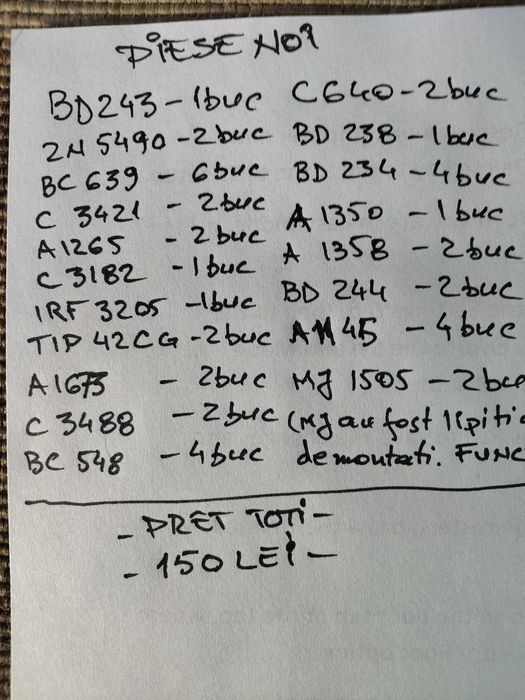 PIESE NOI
BD243 - 1buc C640 - 2buc
2N 5490 - 2buc BD 238 - 1buc
BC 639 - 6buc BD 234 - 4buc
C 3421 - 2buc A 1350 - 1buc
A1265 - 2buc A 1358 - 2buc
C 3182 - 1buc BD 244 - 2buc
IRF 3205 - 1buc
TIP 42CG - 2buc A1145 - 4buc
A1673 - 2buc MJ 1505 - 2buc
C 3488 - 2buc (MJ au fost lipiti
BC 548 - 4buc demontati. FUNC
- PRET TOTI -
- 150 LEI -